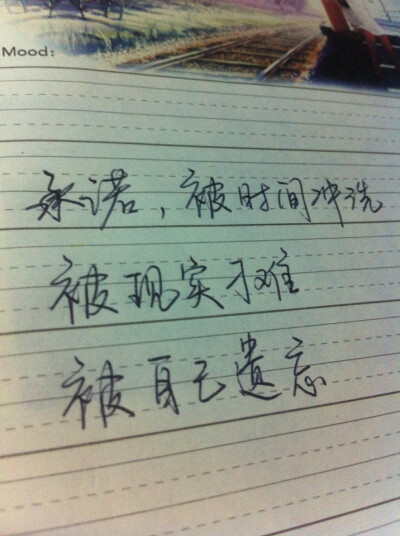 Mood:
承诺，被时间冲洗
被现实刁难
被自己遗忘